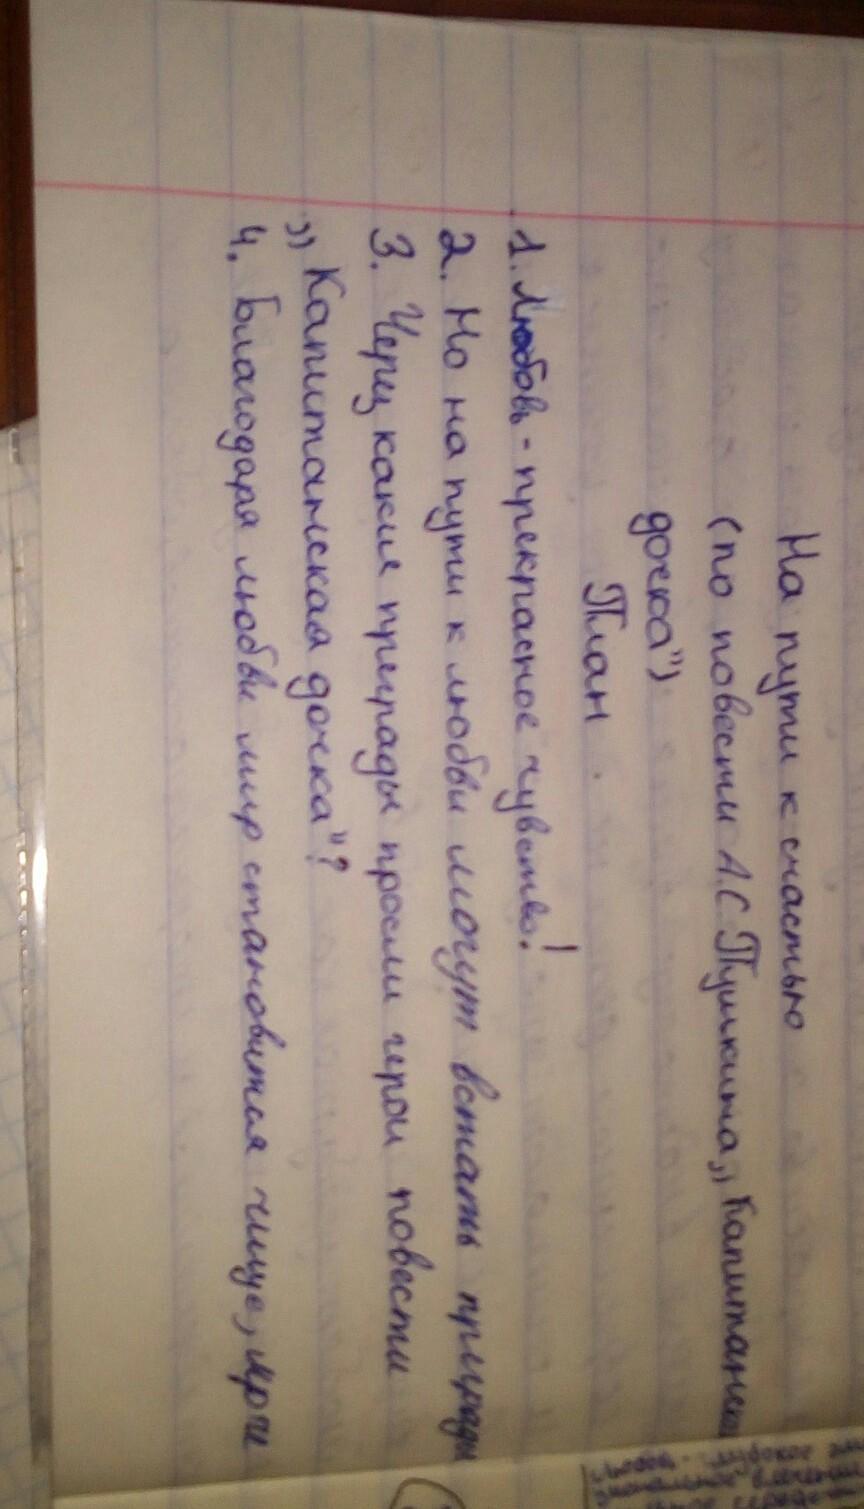 На пути к счастью
(по повести А.С.Пушкина „Капитанская
дочка")
План.
1. Любовь - прекрасное чувство!
2. Но на пути к любви могут встать преграды
3. Через какие преграды прошли герои повести
„Капитанская дочка"?
4. Благодаря любви мир становится чище, ярче